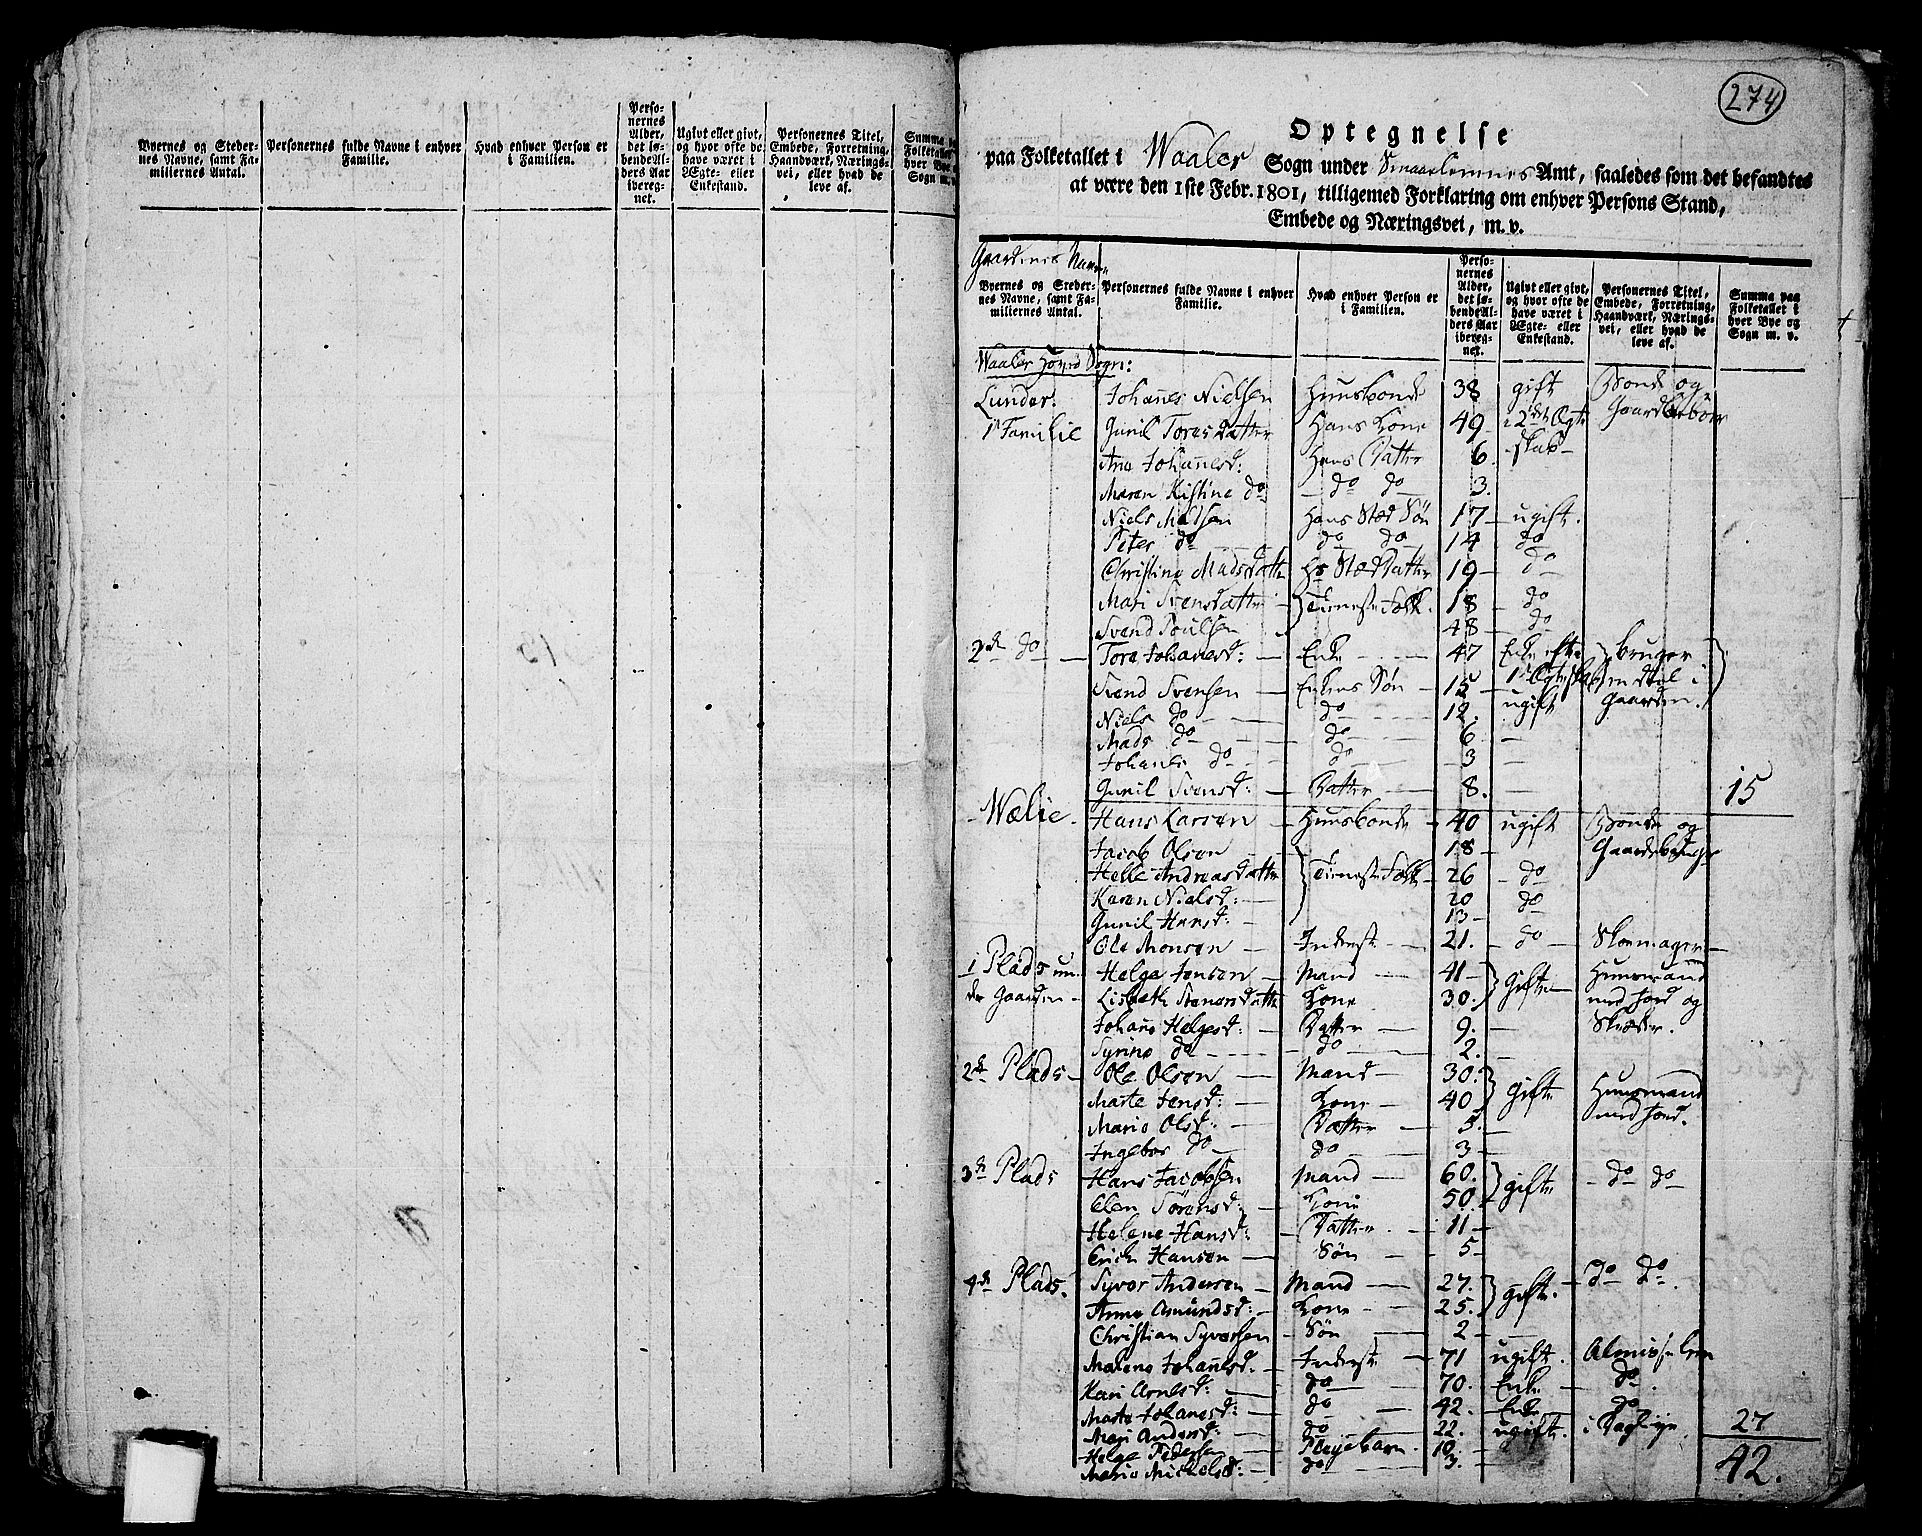 Byernes og Steder-
nes Navne, samt Fa-
miliernes Antal.
Personernes fulde Navne i enhver
Familie.
Hvad enhver Person er
i Familien.
Perso-
nernes
Alder,
det lø-
bende Al-
ders Aar
ibereg-
net.
Ugivt eller givt,
og hvor ofte de
have været i
Ægte- eller
Enkestand.
Personernes Titel,
Embede, Forretning,
Haandværk, Nærings-
vei, eller hvad de
leve af.
Summa pa
Folketallet
hver Bye o
Sogn m. v.
274
Optegnelse
paa Folketallet i Waaler Sogn under Smaalennenes Amt, saaledes som det befandtes
at være den 1ste Febr. 1801, tilligemed Forklaring om enhver Persons Stand,
Embede og Næringsvei, m. v.
Gaardenes Navne
Byernes og Steder-
nes Navne, samt Fa-
miliernes Antal.
Personernes fulde Navne i enhver
Familie.
Hvad enhver Person er
i Familien.
Perso-
nernes
Alder,
det lø-
bende Al-
ders Aar
ibereg-
net.
Ugivt eller givt,
og hvor ofte de
have været i
Ægte- eller
Enkestand.
Personernes Titel,
Embede, Forretning,
Haandværk, Nærings-
vei, eller hvad de
leve af.
Summa paa
Folketallet i
hver Bye og
Sogn m. v.
Waaler Hoved Sogn:
Lunder. Johanes Nielsen Huusbonde 38 gift Bonde og
1 Familie Gunil Toresdatter Hans Kone 49 i 2det Ægte Gaardbeboer
Ane Johanesd: Hans Datter 6. skab
Maren Kistine do do do 3.
Niels Madsen Hans Sted Søn 17 ugift.
Peter do do do 14 do
Christine Madsdatter Hs Sted Datter 19 do
Mari Svensdatter Tieneste Folk. 18 do
Svend Poulsen 48 do
2de do Tore Johanesd: Enke 47 Enke efter bruger
Svend Svensen Enkens Søn 15 1ste Ægteskab en deel i
Niels do do 12. ugift Gaarden.
Mads do do 6
Johanes do do 3
Gunil Svensd: Datter 8. 15
Wælie. Hans Larsen Huusbonde 40 ugift Bonde og
Jacob Olsen 18 Gaardebeboer
Helle Andreasdatter Tieneste Folk 26 do
Karen Nielsd: 20 do
Gunil Hansd: 13
Ole Monsen Inderste 21. do Skoemager
1 Plads un- Helge Jensen Mand 41 gifte Huusmand
der Gaarden Lisbeth Svensdatter Kone 30. med Jord og
Johane Helgesd: Datter 9. Skræder.
Syrine do do 2.
2de Plads Ole Olsen Mand 30. gifte Huusmand
Marte Jensd: Kone 40 med Jord.
Marie Olsd: Datter 5.
Ingebor do do 3
3de Plads Hans Jacobsen Mand 60. gifte do do
Elen Sørensd: Kone 50.
Helene Hansd: Datter 11
Erich Hansen Søn 5
4de Plads. Syver Andersen Mand 27. gifte. do do.
Anne Amundsd: Kone 25.
Christian Syversen Søn 2
Malene Johanesd. Inderste 71 ugift. Almisse Lem
Kari Arnesd: do 70. Enke do
Marte Johanesd: do 42. Enke do
Mari Andersd: do 22. ugift. i Dagleye. 27
Helge Pedersen Pleyebarn. 10.
Marie Michelsd: do 3. 42.